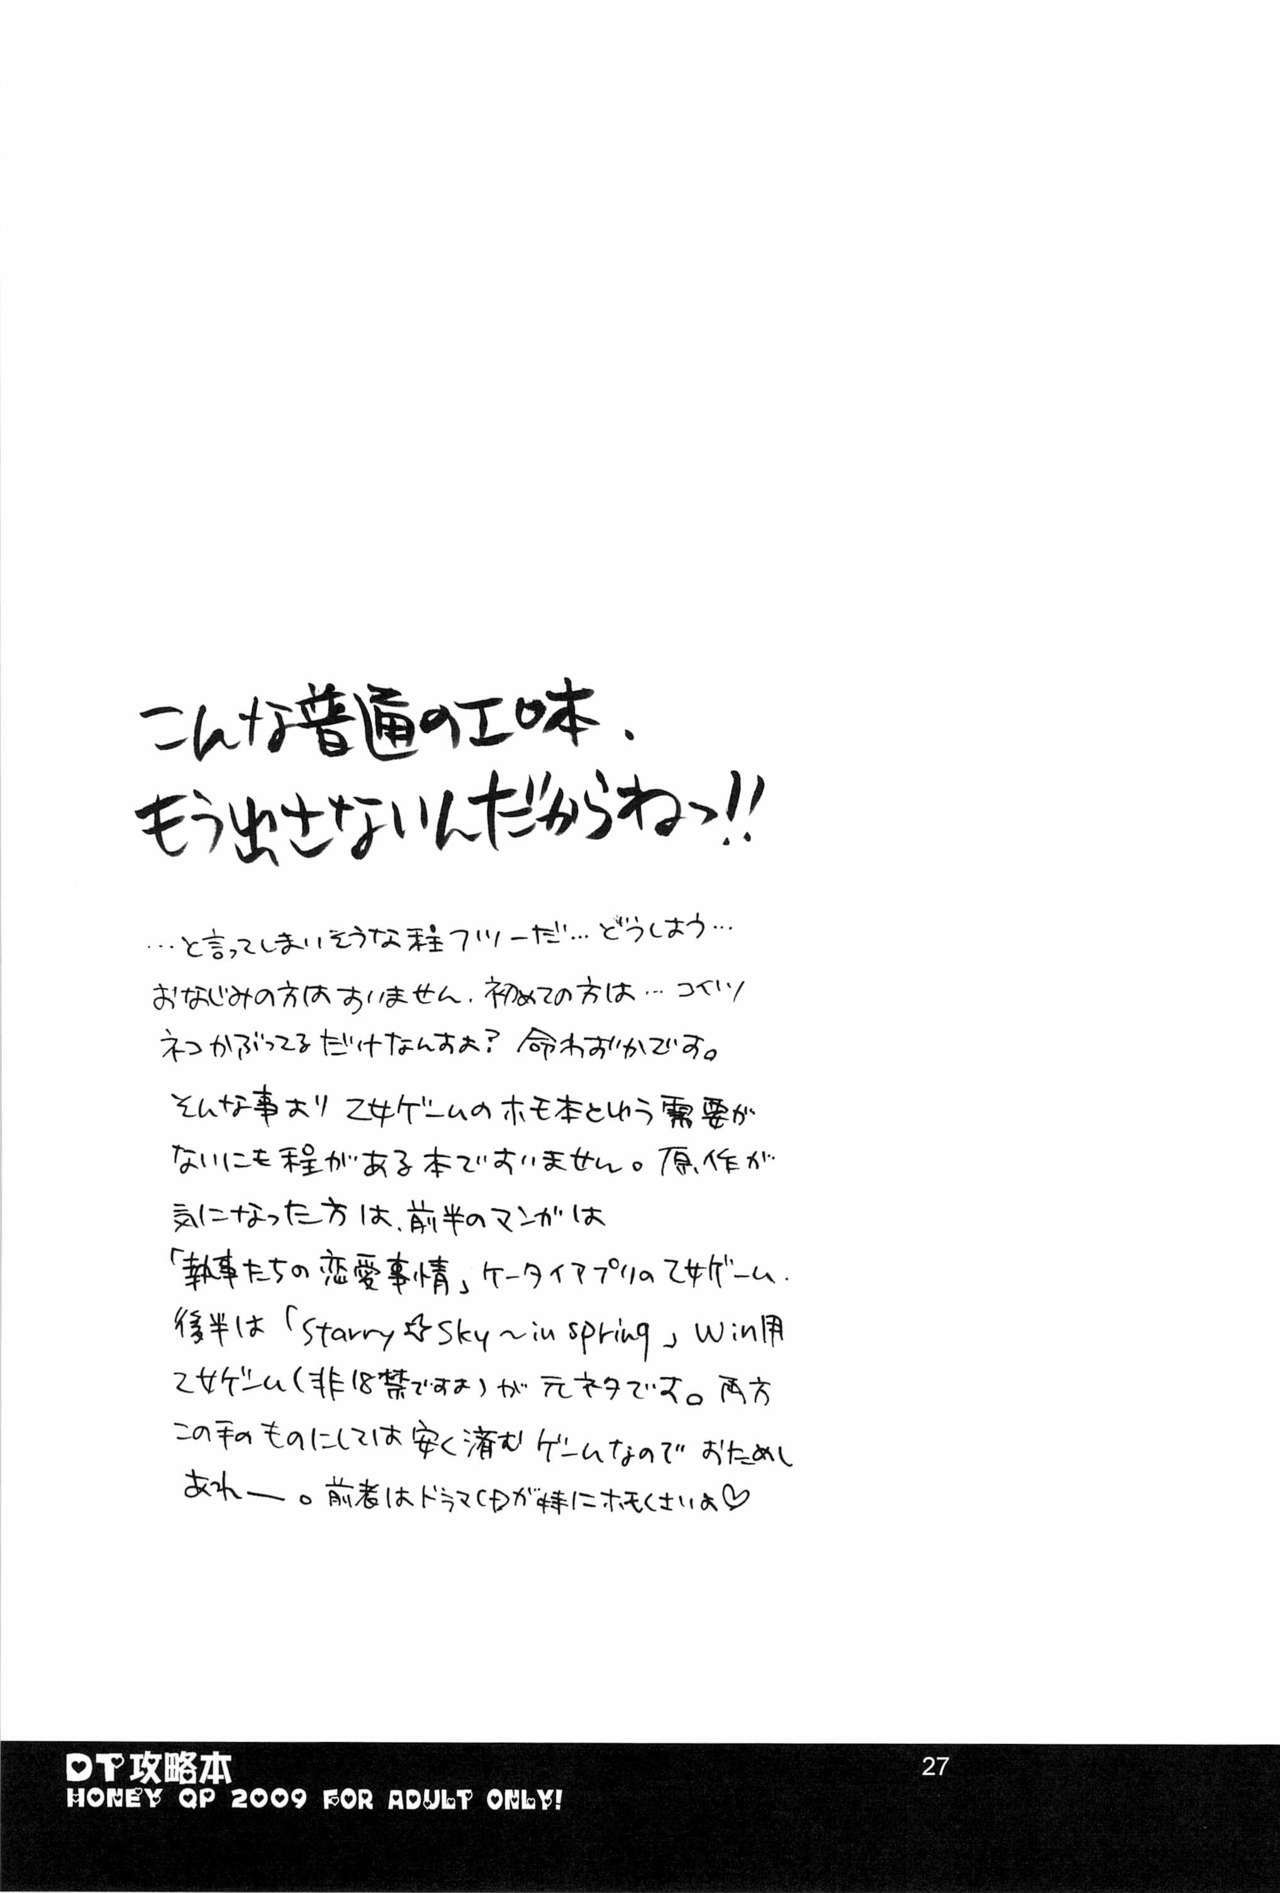 こんな普通のエロ本、
もう出さないんだからねっ!!
…と言ってしまいそうな程フツーだ…どうしよう…
おなじみの方はすいません、初めての方は…コイツ
ネコかぶってるだけなんすよ？ 命わずかです。
そんな事より 乙女ゲームのホモ本という需要が
ないにも程がある本ですいません。原作が
気になった方は、前半のマンガは
「執事たちの恋愛事情」ケータイアプリの乙女ゲーム、
後半は「Starry☆Sky～in spring」Win用
乙女ゲーム(非18禁ですよ)が 元ネタです。両方
この手のものにしては 安く済む ゲームなので おためし
あれー。前者はドラマCDが特にホモくさいよ♡
DT攻略本
HONEY QP 2009 FOR ADULT ONLY!
27